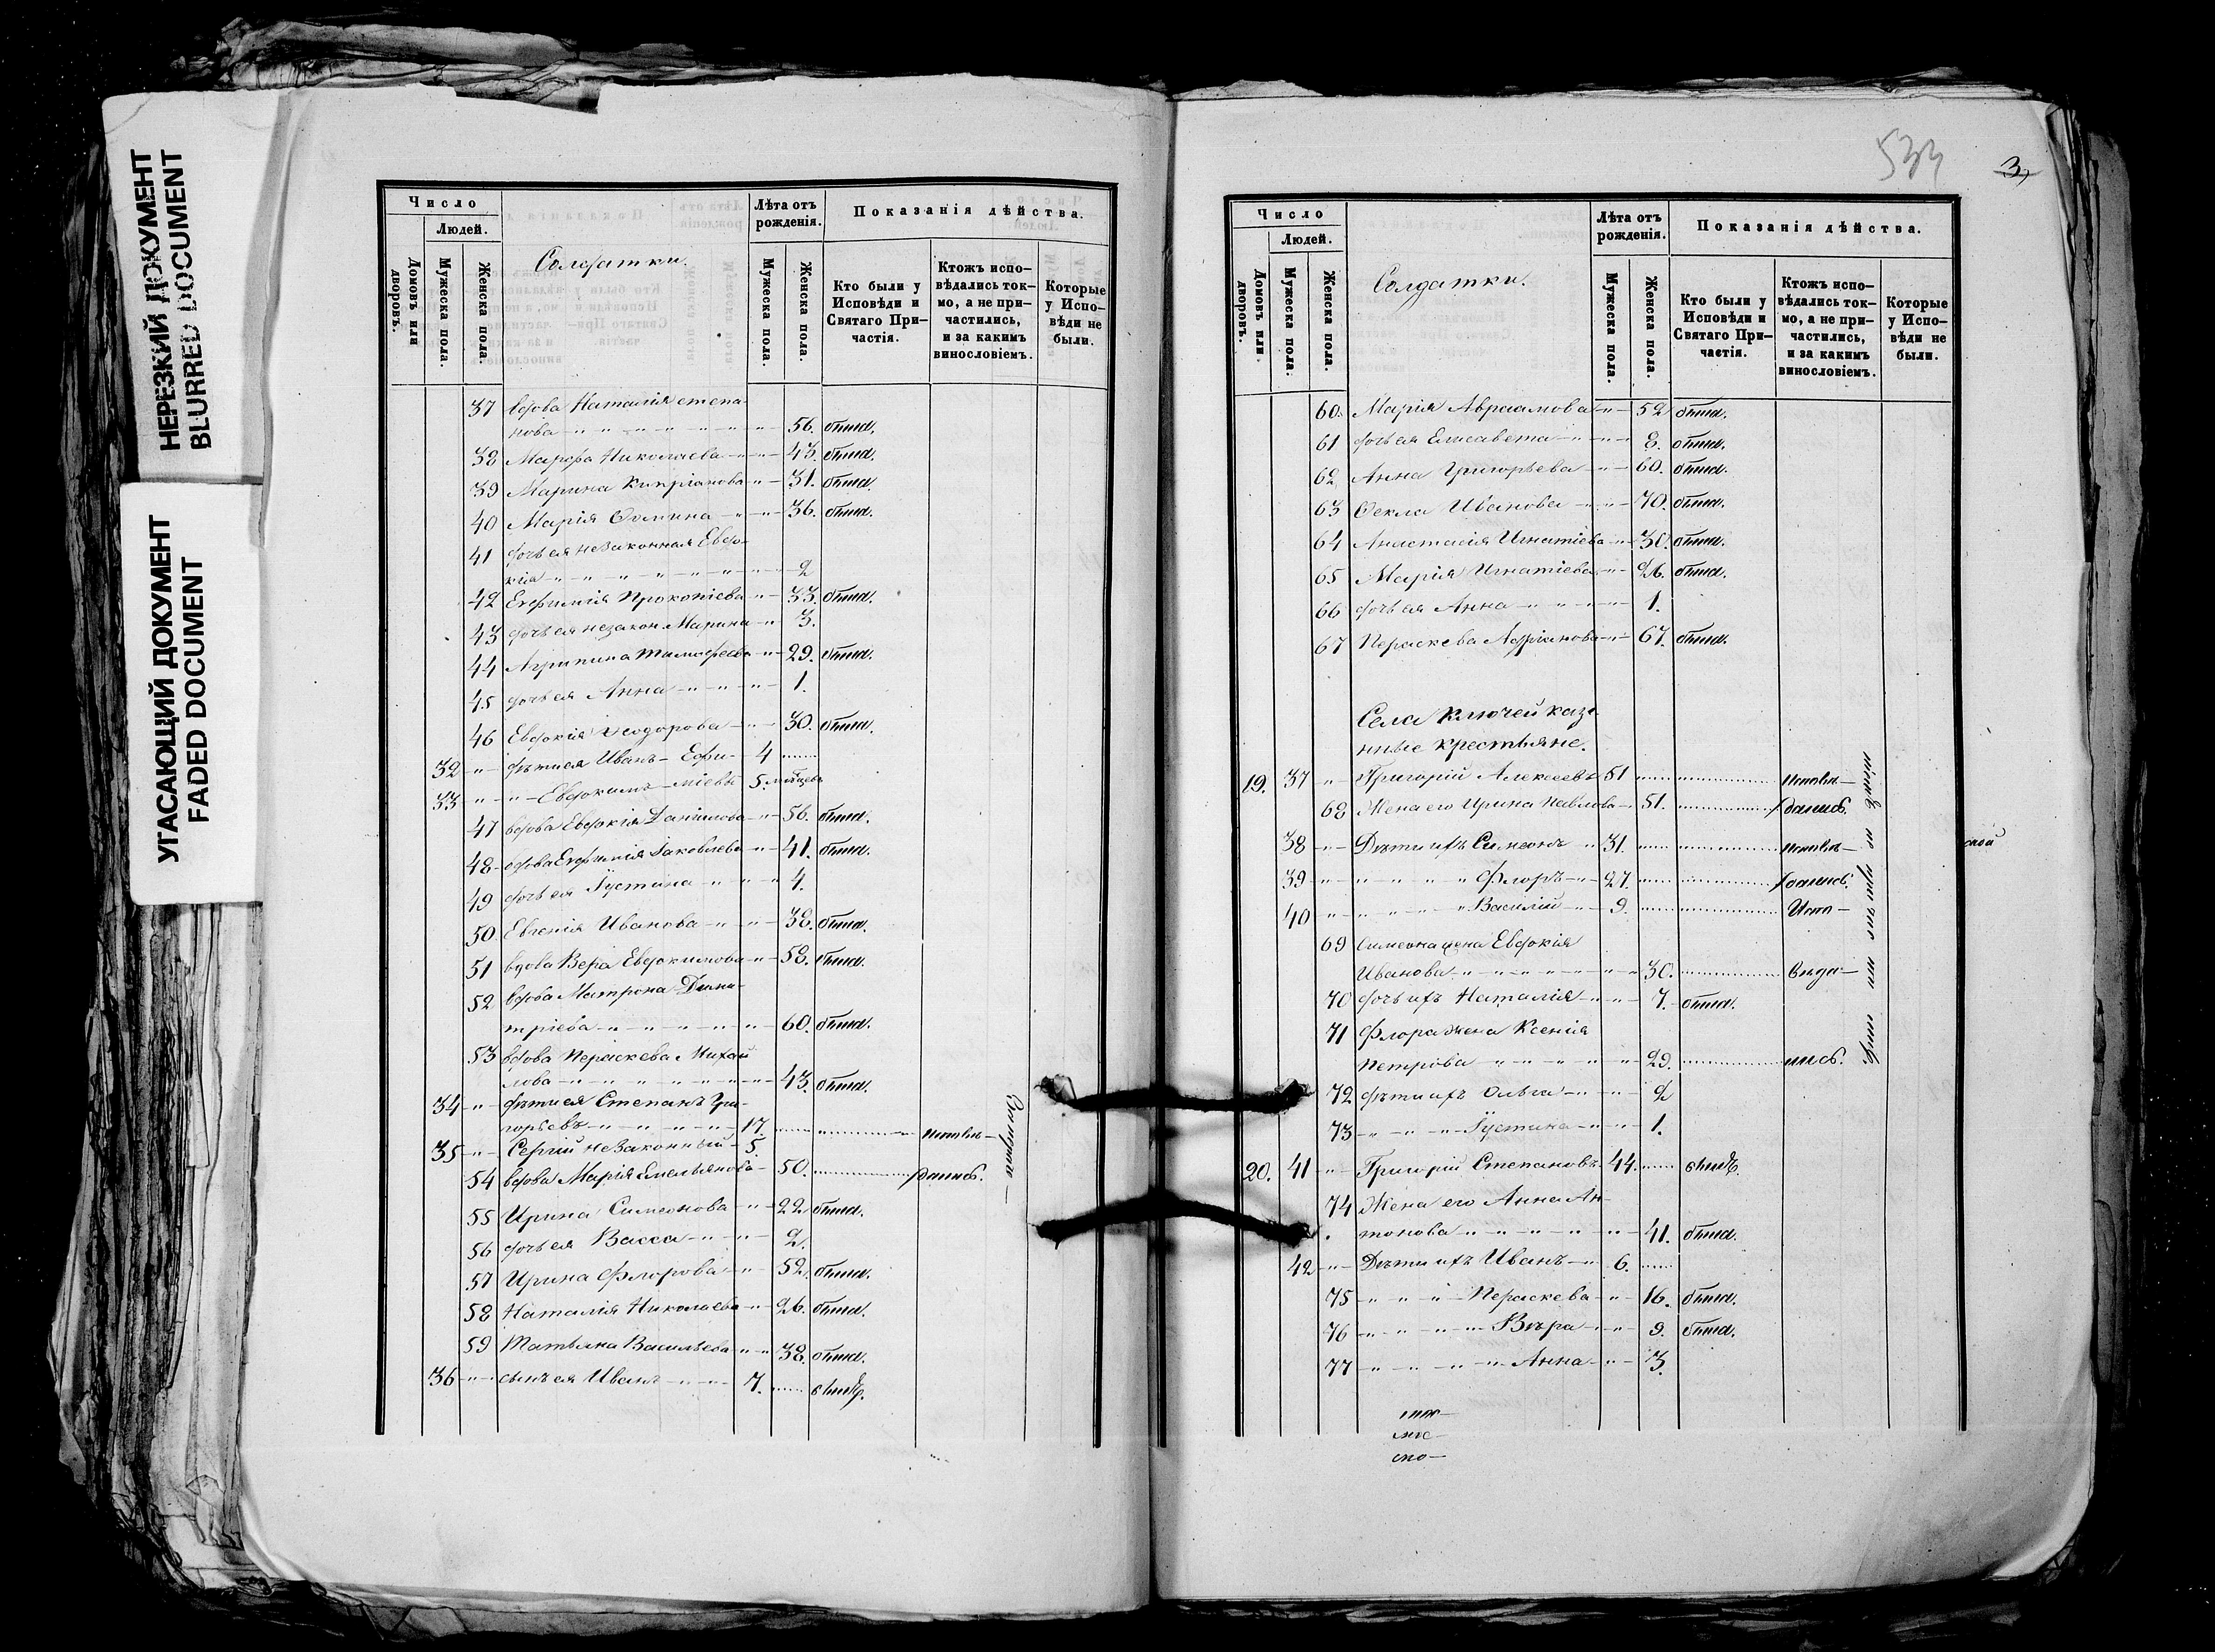 НЕРЕЗКИЙ ДОКУМЕНТ
BLURRED DOCUMENT
УГАСАЮЩИЙ ДОКУМЕНТ
FADED DOCUMENT
Число
Людей.
Домовъ или дворовъ.
Мужеска пола.
Женска пола.
Солдатки.
Лѣта отъ рожденія.
Мужеска пола.
Женска пола.
Показанія дѣйства.
Кто были у Исповѣди и Святаго Причастія.
Ктожъ исповѣдались токмо, а не причастились, и за какимъ винословіемъ.
Которые у Исповѣди не были.
37 вдова Наталія степа-
нова 56. была.
38 Марфа Николаева 43. была.
39 Марина Кипріанова 31. была.
40 Марія Фомина 36. была.
41 дочь ея незаконная Евдо-
кія 2
42 Евфимія Прокопіева 33. была.
43 дочь ея незакон. Марина 3.
44 Агрипина Тимофеева 29. была.
45 дочь ея Анна 1.
46 Евдокія Феодорова 30. была.
32 дѣти ея Иванъ Ефи- 4
33 Евдокимъ міевы 5 мѣсцевъ
47 вдова Евдокія Даніилова 56. была.
48 вдова Евфимія Іаковлева 41. была.
49 дочь ея Іустина 4.
50. Евгенія Иванова 38. была.
51 вдова Вера Евдокимова 58. была.
52 вдова Матрона Дими-
тріева 60. была.
53 вдова Параскева Михай
лова 43. была.
34 дѣти ея Степанъ Гри-
горьевъ 17. исповѣ-
35 Сергій незаконный 5.
54 вдова Марія Емельянова 50. дались.
55 Ирина Симеонова 22 была.
56 дочь ея Васса 2.
57 Ирина Флорова 52. была.
58 Наталія Николаева 26. была.
59 Татьяна Васильева 38. была.
36 сынъ ея Иванъ 7. былъ.
533
3
Число
Людей.
Домовъ или дворовъ.
Мужеска пола.
Женска пола.
Солдатки.
Лѣта отъ рожденія.
Мужеска пола.
Женска пола.
Показанія дѣйства.
Кто были у Исповѣди и Святаго Причастія.
Ктожъ исповѣдались токмо, а не причастились, и за какимъ винословіемъ.
Которые у Исповѣди не были.
60. Марія Авраамова 52 была.
61 дочь ея Елисавета 8. была.
62 Анна Григорьева 60. была.
63 Фекла Иванова 70. была.
64 Анастасія Игнатіева 30. была.
65 Марія Игнатіева 26. была.
66 дочь ея Анна 1.
67 Параскева Адріанова 67. была.
Села Ключей казе-
нные крестьяне.
19. 37 Григорій Алексеевъ 51 исповѣ-
68 Жена его Ирина Павлова 51. дались.
38 Дѣти ихъ Симеонъ 31. исповѣ-
39 Флоръ 27. дались.
40 Василій 9. Испо-
69 Симеона жена Евдокія
Иванова 30. вѣда-
70 дочь ихъ Наталія 7. была.
71 Флора жена Ксенія
Петрова 29. лись.
72 дѣти ихъ Ольга 2
73 Іустина 1.
20. 41 Григорій Степановъ 44. былъ.
74 Жена его Анна Ан-
тонова 41. была.
42 Дѣти ихъ Иванъ 6.
75 Параскева 16. была.
76 Вѣра 9. была.
77 Анна 3.